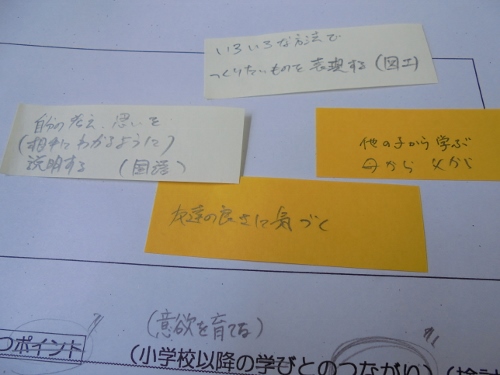 いろいろな方法で
つくりたいものを表現する(図工)
自分の考え、思いを
(相手にわかるように)
説明する (国語)
他の子から学ぶ
友達の良さに気づく
(意欲を育てる)
つポイント
(小学校以降の学びとのつながり)